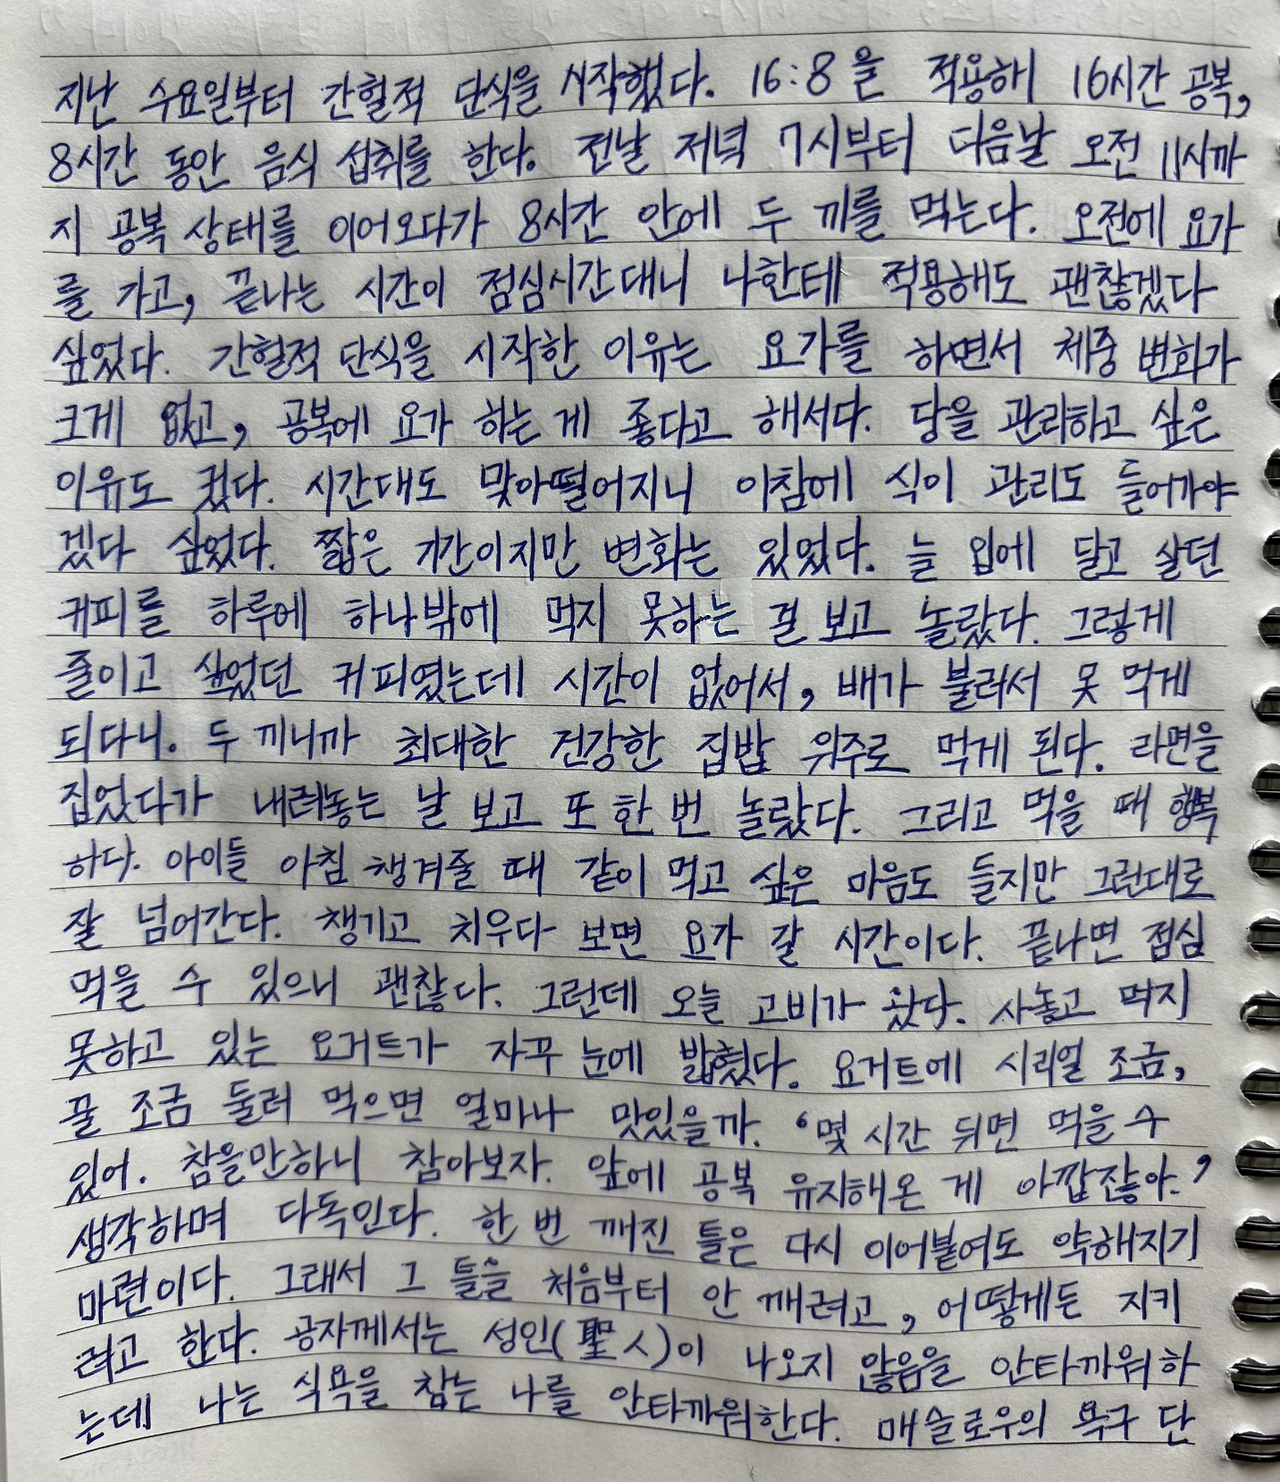 지난 수요일부터 간헐적 단식을 시작했다. 16:8을 적용해 16시간 공복,
8시간 동안 음식 섭취를 한다. 전날 저녁 7시부터 다음날 오전 11시까
지 공복 상태를 이어오다가 8시간 안에 두 끼를 먹는다. 오전에 요가
를 가고, 끝나는 시간이 점심시간대니 나한테 적용해도 괜찮겠다
싶었다. 간헐적 단식을 시작한 이유는 요가를 하면서 체중 변화가
크게 없고, 공복에 요가 하는 게 좋다고 해서다. 당을 관리하고 싶은
이유도 컸다. 시간대도 맞아떨어지니 이참에 식이 관리도 들어가야
겠다 싶었다. 짧은 기간이지만 변화는 있었다. 늘 입에 달고 살던
커피를 하루에 하나밖에 먹지 못하는 걸 보고 놀랐다. 그렇게
줄이고 싶었던 커피였는데 시간이 없어서, 배가 불러서 못 먹게
되다니. 두 끼니까 최대한 건강한 집밥 위주로 먹게 된다. 라면을
집었다가 내려놓는 날 보고 또 한 번 놀랐다. 그리고 먹을 때 행복
하다. 아이들 아침 챙겨줄 때 같이 먹고 싶은 마음도 들지만 그런대로
잘 넘어간다. 챙기고 치우다 보면 요가 갈 시간이다. 끝나면 점심
먹을 수 있으니 괜찮다. 그런데 오늘 고비가 왔다. 사놓고 먹지
못하고 있는 요거트가 자꾸 눈에 밟혔다. 요거트에 시리얼 조금,
꿀 조금 둘러 먹으면 얼마나 맛있을까. ‘몇 시간 뒤면 먹을 수
있어. 참을만하니 참아보자. 앞에 공복 유지해온 게 아깝잖아.’
생각하며 다독인다. 한 번 깨진 틀은 다시 이어붙여도 약해지기
마련이다. 그래서 그 틀을 처음부터 안 깨려고, 어떻게든 지키
려고 한다. 공자께서는 성인(聖人)이 나오지 않음을 안타까워하
는데 나는 식욕을 참는 나를 안타까워한다. 매슬로우의 욕구 단